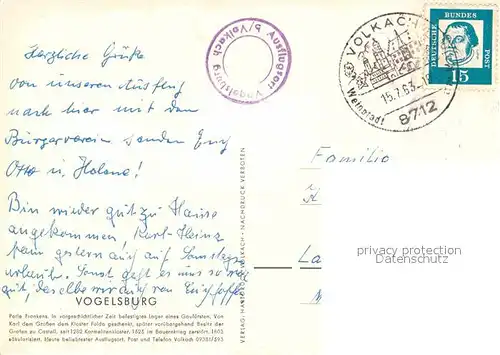 Herzliche Grüße
von unseren Ausflug
nach hier mit dem
Bürgerverein senden Euch
Otto u. Helene!
Bin wieder gut zu Hause
angekommen, Karl-Heinz
kam gestern auch auf Samstags
urlaub. Sonst geht es uns soweit
gut, dasselbe wir auch von Euch hoffen
VOGELSBURG
Perle Frankens. In vorgeschichtlicher Zeit befestigtes Lager eines Gaufürsten. Von
Karl dem Großen dem Kloster Fulda geschenkt, später vorübergehend Besitz der
Grafen zu Castell, seit 1282 Karmelitenkloster, 1525 im Bauernkrieg zerstört, 1803
säkularisiert. Heute beliebtester Ausflugsort. Post und Telefon Volkach 09381/593
Ausflugsort Vogelsburg b/Volkach
VOLKACH
15.7.63
Weinstadt
8712
DEUTSCHE BUNDESPOST
15
VOLKACH · NACHDRUCK VERBOTEN
Familie
privacy protection
CollectionMails.com